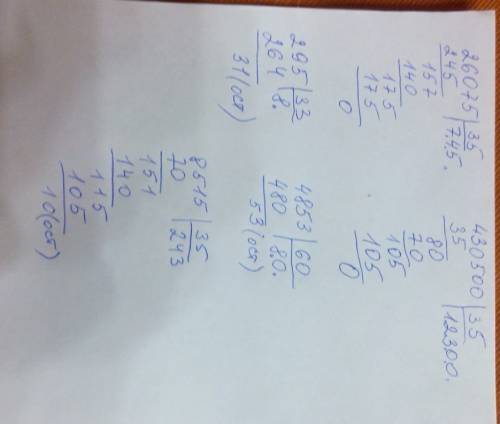 26075 | 35
245 | 745.
157
140
175
175
0
430500 | 35
35 | 12300.
80
70
105
105
0
295 | 33
264 | 8.
31(ост)
4853 | 60
480 | 80.
53(ост)
8515 | 35
70 | 243
151
140
115
105
10(ост)